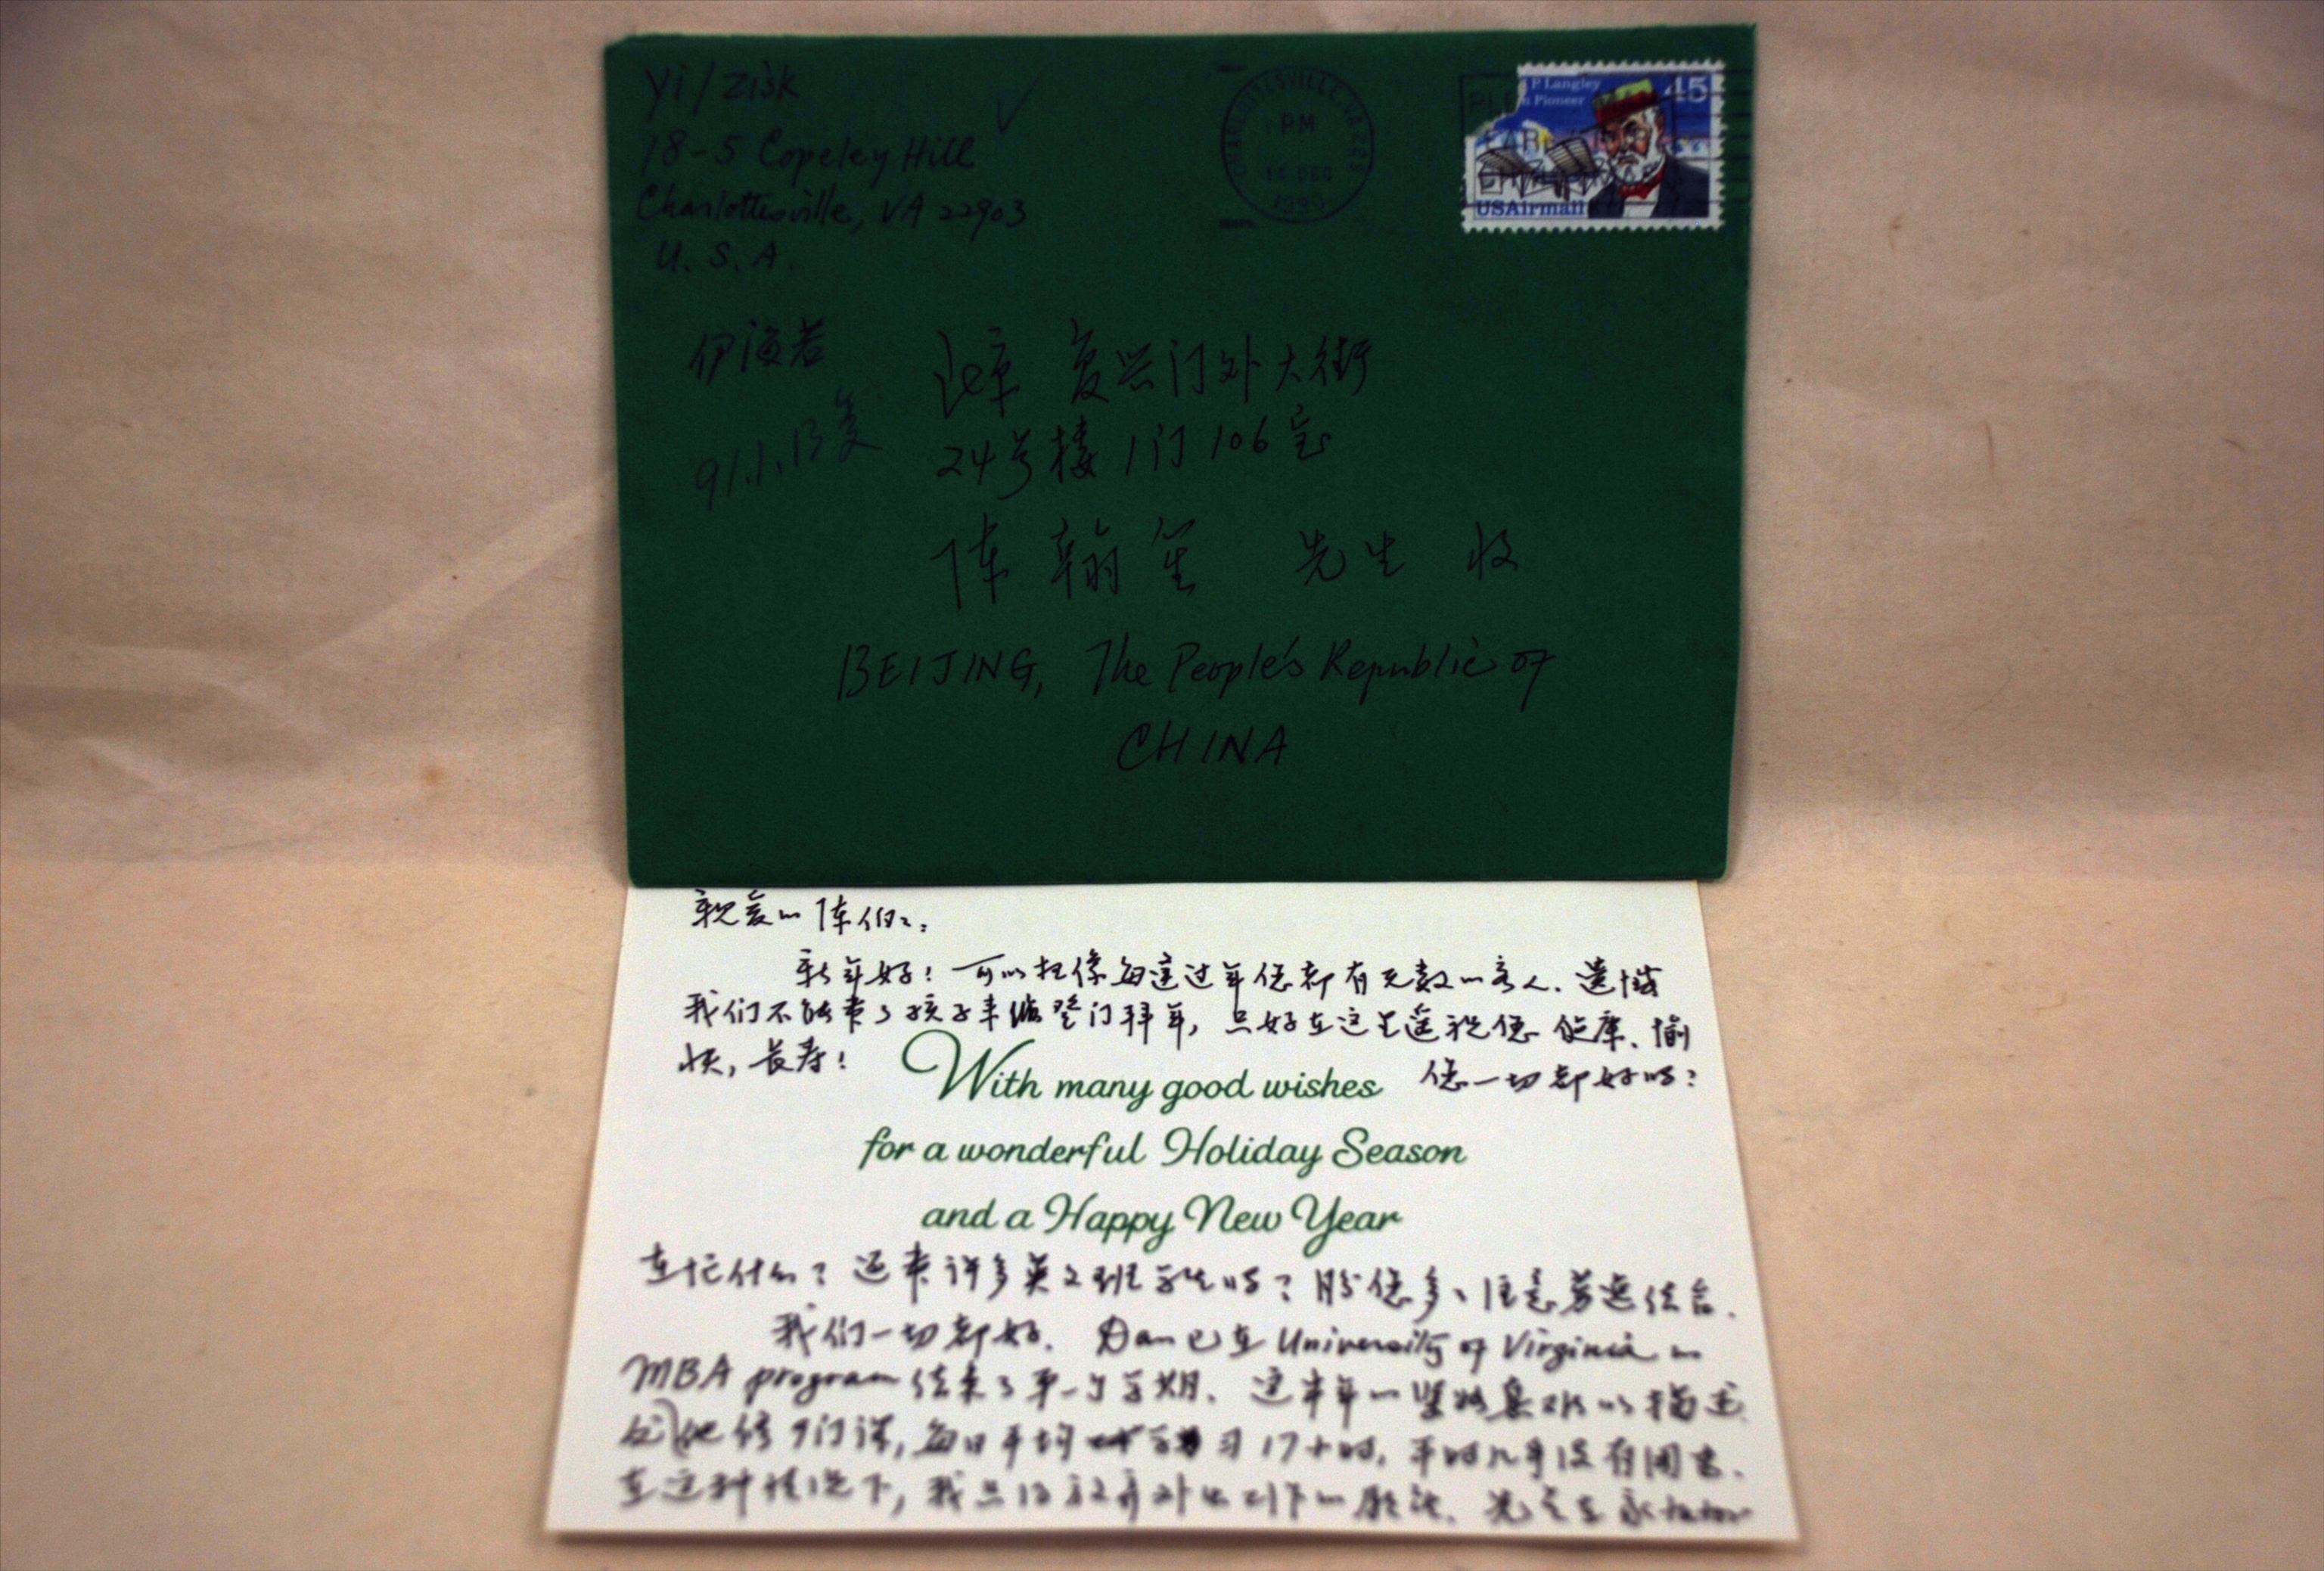 Yi / Zisk
18-5 Copeley Hill
Charlottesville, VA 22903
U.S.A.
CHARLOTTESVILLE, VA
PM
DEC
1990
P Langley
n Pioneer
45
USAirmail
伊
91.1.13复
北京 复兴门外大街
24号楼1门106室
陈翰笙 先生 收
BEIJING, The People's Republic of
CHINA
亲爱的陈伯伯:
新年好!可以想像每逢过年您都有无数的客人.遗憾
我们不能带了孩子来登门拜年,只好在这里遥祝您健康、愉
快,长寿!
您一切都好吗?
With many good wishes
for a wonderful Holiday Season
and a Happy New Year
在忙什么?还来许多英文班学生吗?盼您多多注意劳逸结合.
我们一切都好. Dan已在University of Virginia的
MBA program结束了第一个学期.这半年的紧张是难以描述
他修9门课,每日平均学习17小时,平时几乎没有周末.
在这种情况下,我只得放弃外出工作的